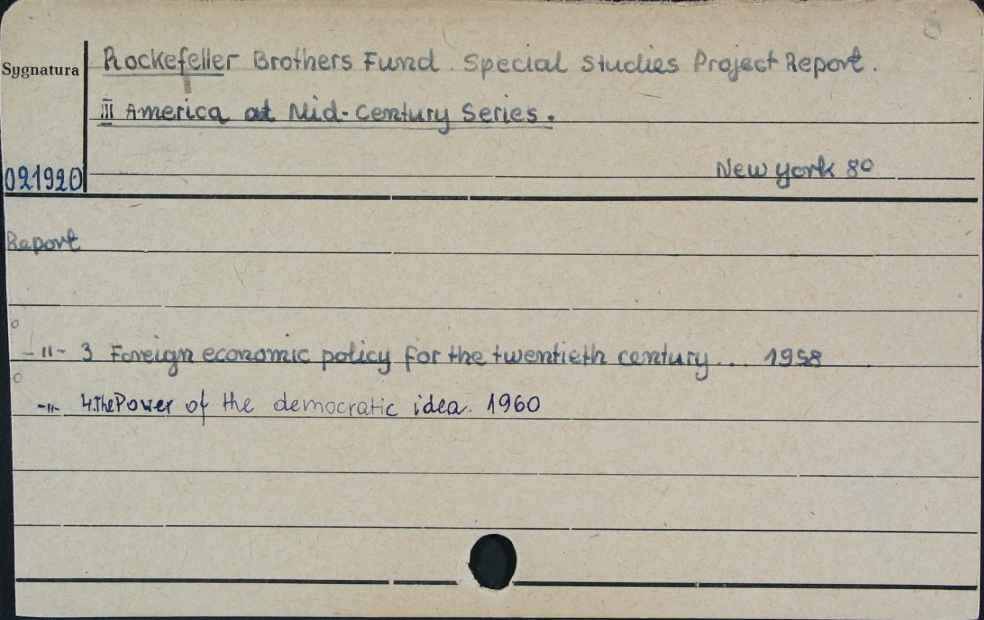 Rockefeller Brothers Fund. Special Studies Project Report.
Sygnatura
III America at Mid-Century Series.
New York 8o
021920
Report
-"- 3 Foreign economic policy for the twentieth century... 1958
-"- 4. The Power of the democratic idea. 1960